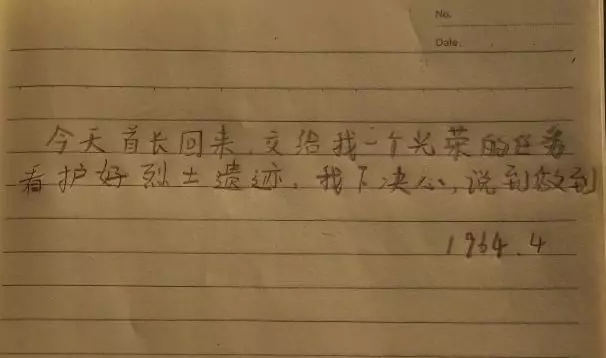 No.
Date.
今天首长回来，交给我一个光荣的任务
看护好烈士遗迹，我下决心，说到做到
1964.4